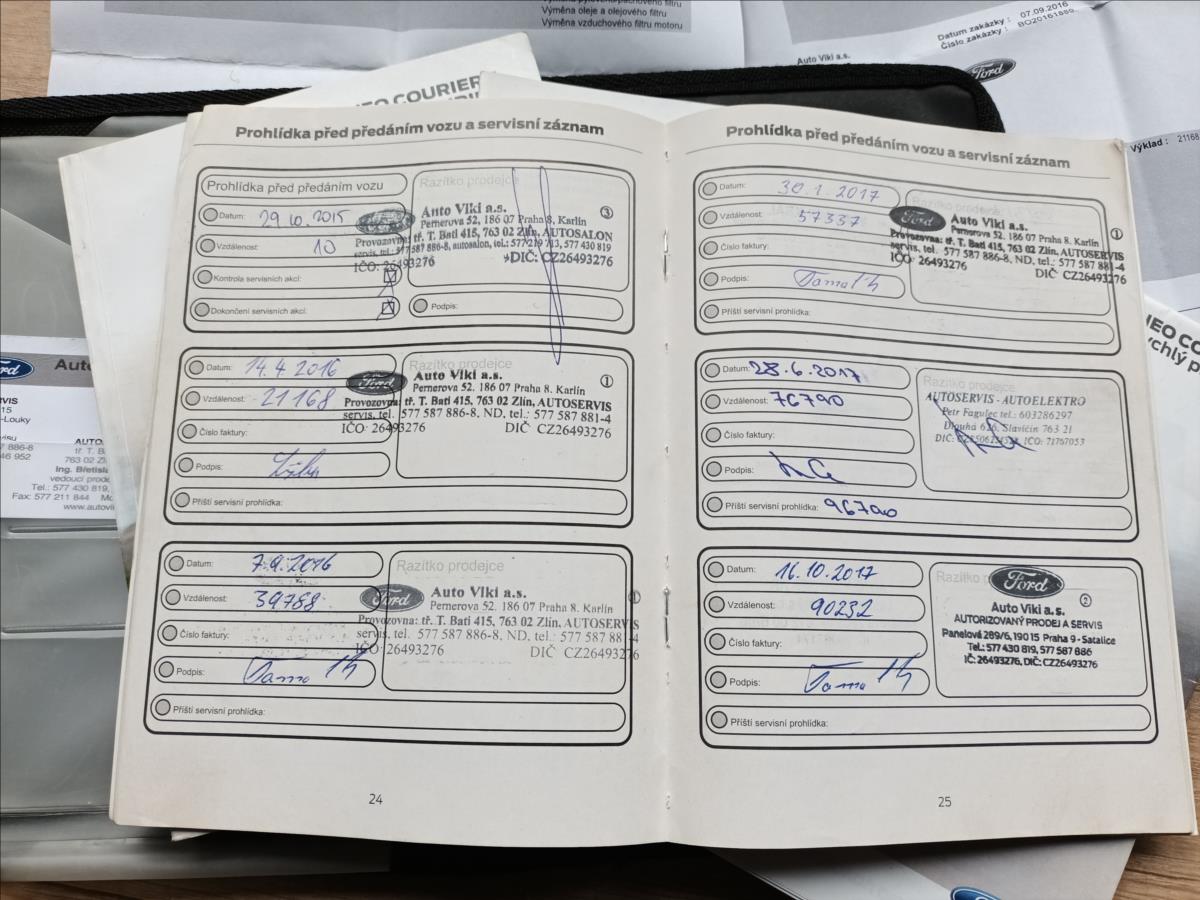 Výměna oleje a olejového filtru
Výměna vzduchového filtru motoru
Datum zakázky : 07.09.2016
Číslo zakázky :
Auto Viki a.s.
Ford
Výklad : 21168
COURIER
Prohlídka před předáním vozu a servisní záznam
Prohlídka před předáním vozu
Razítko prodejce
Datum: 29.10.2015
Vzdálenost: 10
Kontrola servisních akcí:
Dokončení servisních akcí:
Podpis:
Auto Viki a.s. 3
Pernerova 52, 186 07 Praha 8, Karlín
Provozovna: tř. T. Bati 415, 763 02 Zlín, AUTOSALON
servis, tel.: 577 587 886-8, autosalon, tel.: 577 219 713, 577 430 819
IČO: 26493276 DIČ: CZ26493276
Datum: 14.4.2016
Vzdálenost: 21168
Číslo faktury:
Podpis:
Příští servisní prohlídka:
Razítko prodejce
Ford
Auto Viki a.s. 1
Pernerova 52. 186 07 Praha 8. Karlín
Provozovna: tř. T. Bati 415, 763 02 Zlín, AUTOSERVIS
servis, tel. 577 587 886-8, ND, tel.: 577 587 881-4
IČO: 26493276 DIČ: CZ26493276
Datum: 7.9.2016
Vzdálenost: 39788
Číslo faktury:
Podpis:
Příští servisní prohlídka:
Razítko prodejce
Ford
Auto Viki a.s. 1
Pernerova 52. 186 07 Praha 8. Karlín
Provozovna: tř. T. Bati 415, 763 02 Zlín, AUTOSERVIS
servis, tel. 577 587 886-8, ND, tel.: 577 587 881-4
IČO: 26493276 DIČ CZ26493276
24
Prohlídka před předáním vozu a servisní záznam
Datum: 30.1.2017
Vzdálenost: 57337
Číslo faktury:
Podpis:
Příští servisní prohlídka:
Razítko prodejce
Ford
Auto Viki a.s. 1
Pernerova 52, 186 07 Praha 8, Karlín
Provozovna: tř. T. Bati 415, 763 02 Zlín, AUTOSERVIS
servis, tel.: 577 587 886-8, ND, tel.: 577 587 881-4
IČO: 26493276 DIČ: CZ26493276
Datum: 28.6.2017
Vzdálenost: 76790
Číslo faktury:
Podpis:
Příští servisní prohlídka: 96790
Razítko prodejce
AUTOSERVIS - AUTOELEKTRO
Petr Fagulec tel.: 603286297
Dlouhá 626, Slavičín 763 21
IČO: 71767053
Datum: 16.10.2017
Vzdálenost: 90232
Číslo faktury:
Podpis:
Příští servisní prohlídka:
Razítko
Ford
Auto Viki a.s. 2
AUTORIZOVANÝ PRODEJ A SERVIS
Panelová 289/6, 190 15 Praha 9 - Satalice
Tel.: 577 430 819, 577 587 886
IČ: 26493276, DIČ: CZ26493276
25
Ing. Břetisla
Tel.: 577 430 819,
Fax: 577 211 844